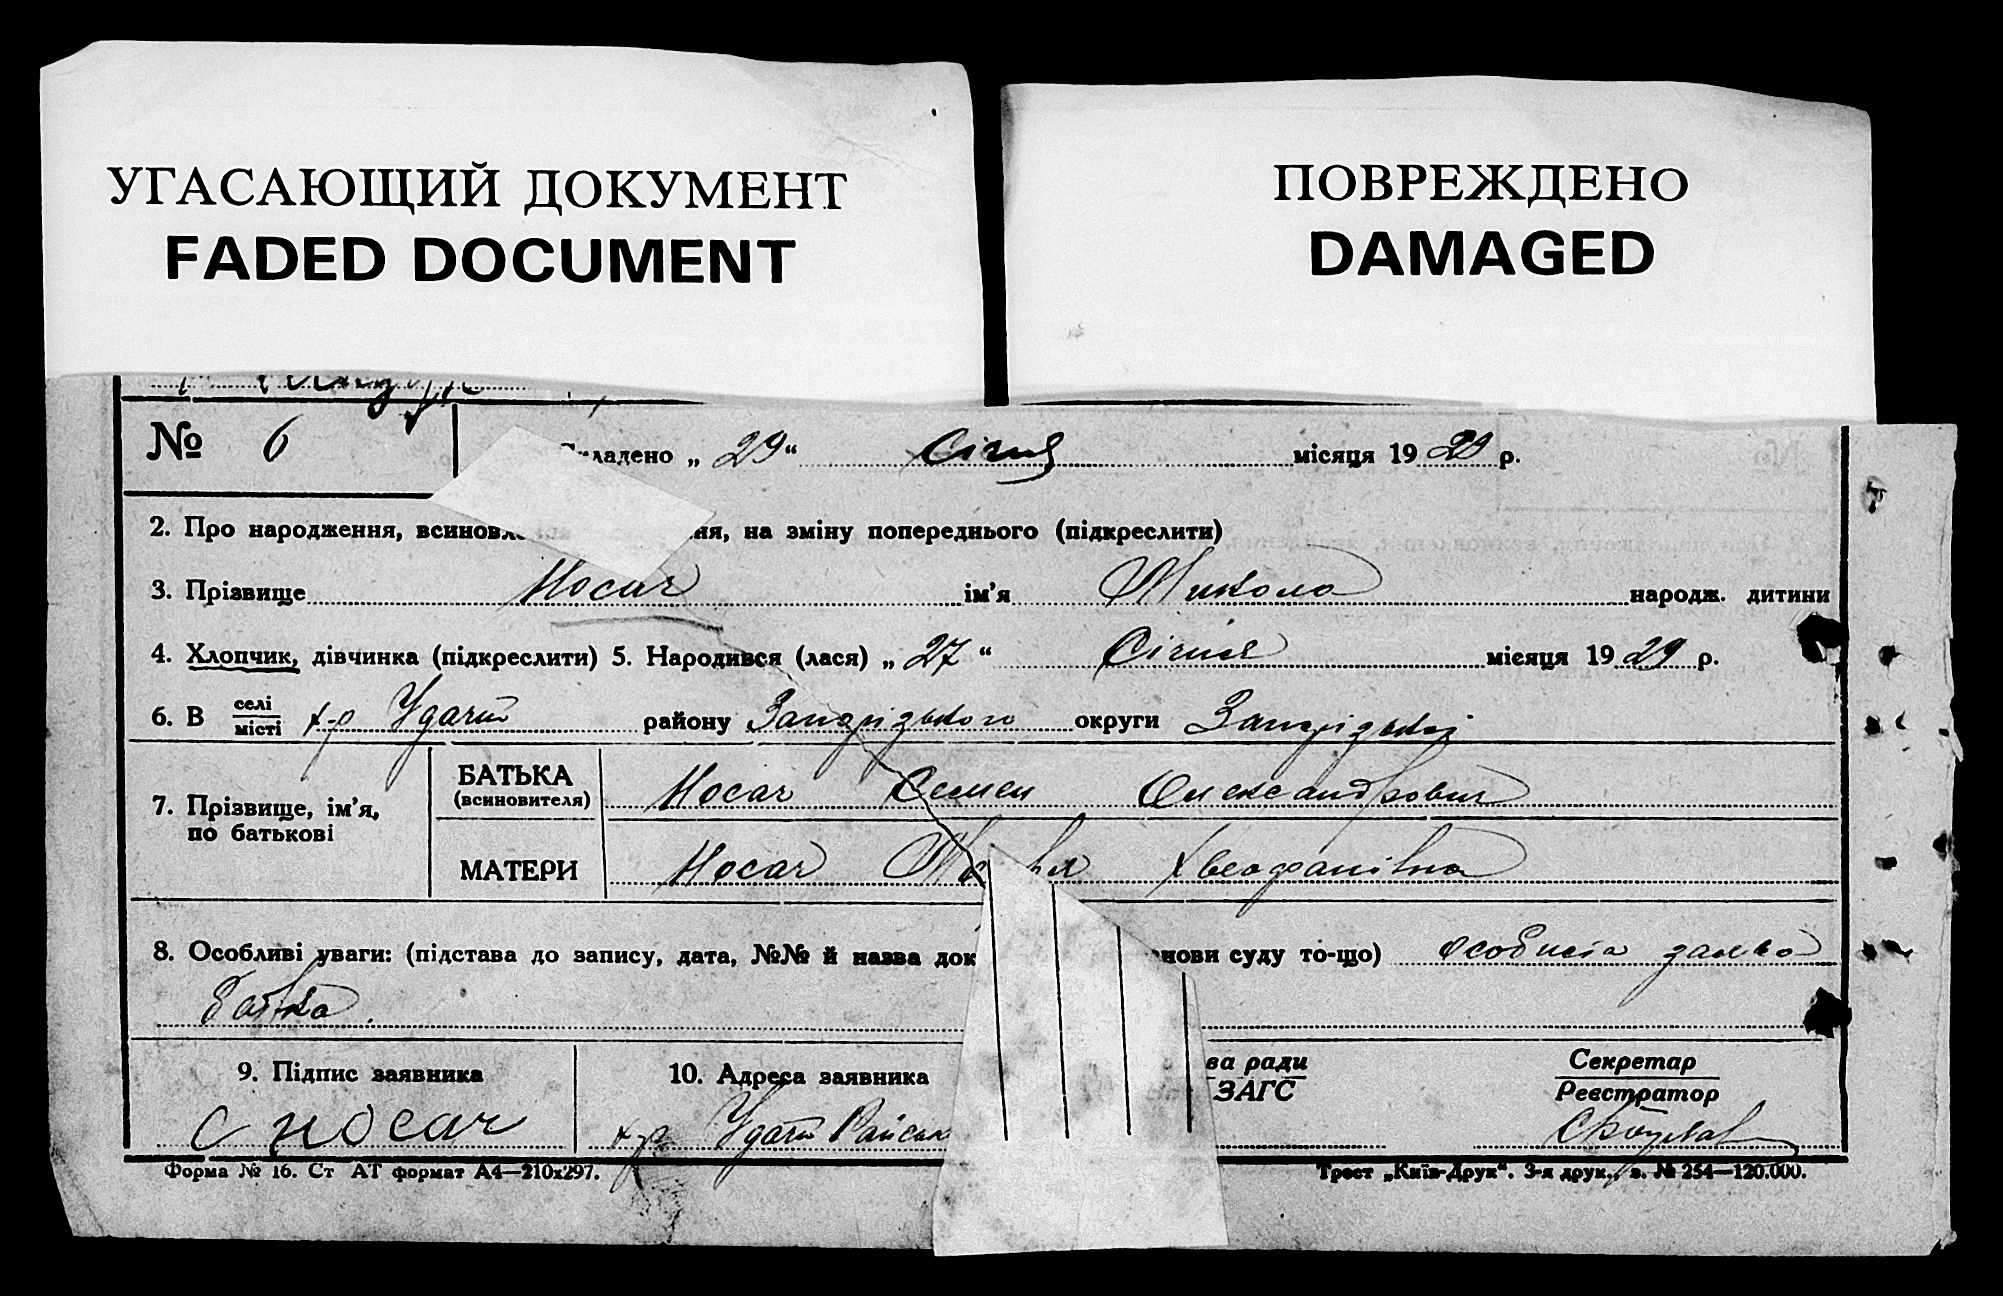 УГАСАЮЩИЙ ДОКУМЕНТ
FADED DOCUMENT
ПОВРЕЖДЕНО
DAMAGED
№ 6 Складено „ 29 “ Січня місяця 19 29 р.
2. Про народження, всиновл ня, на зміну попереднього (підкреслити)
3. Прізвище Носач ім'я Микола народж. дитини
4. Хлопчик, дівчинка (підкреслити) 5. Народився (лася) „ 27 “ Січня місяця 19 29 р.
6. В селі місті х-р Удачи району Запоріզького округи
7. Прізвище, ім'я, по батькові
БАТЬКА (всиновителя) Носач Семен Олександрович
МАТЕРИ Носач Хвеофанівна
8. Особливі уваги: (підстава до запису, дата, №№ й назва док нови суду то-що) особиста заява
батька.
9. Підпис заявника 10. Адреса заявника ва ради ЗАГС Секретар Реєстратор
С Носач х-р
Форма № 16. Ст АТ формат А4—210х297. Трест „Київ-Друк“. 3-я друк., з. № 254—120.000.